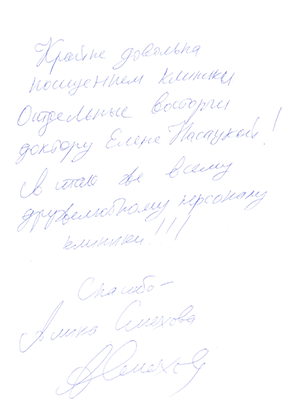 Крайне довольна
посещением клиники
Отдельные восторги
доктору Елене !
А так же всему
дружелюбному персоналу
клиники!!!
Спасибо -
Алина Смехова